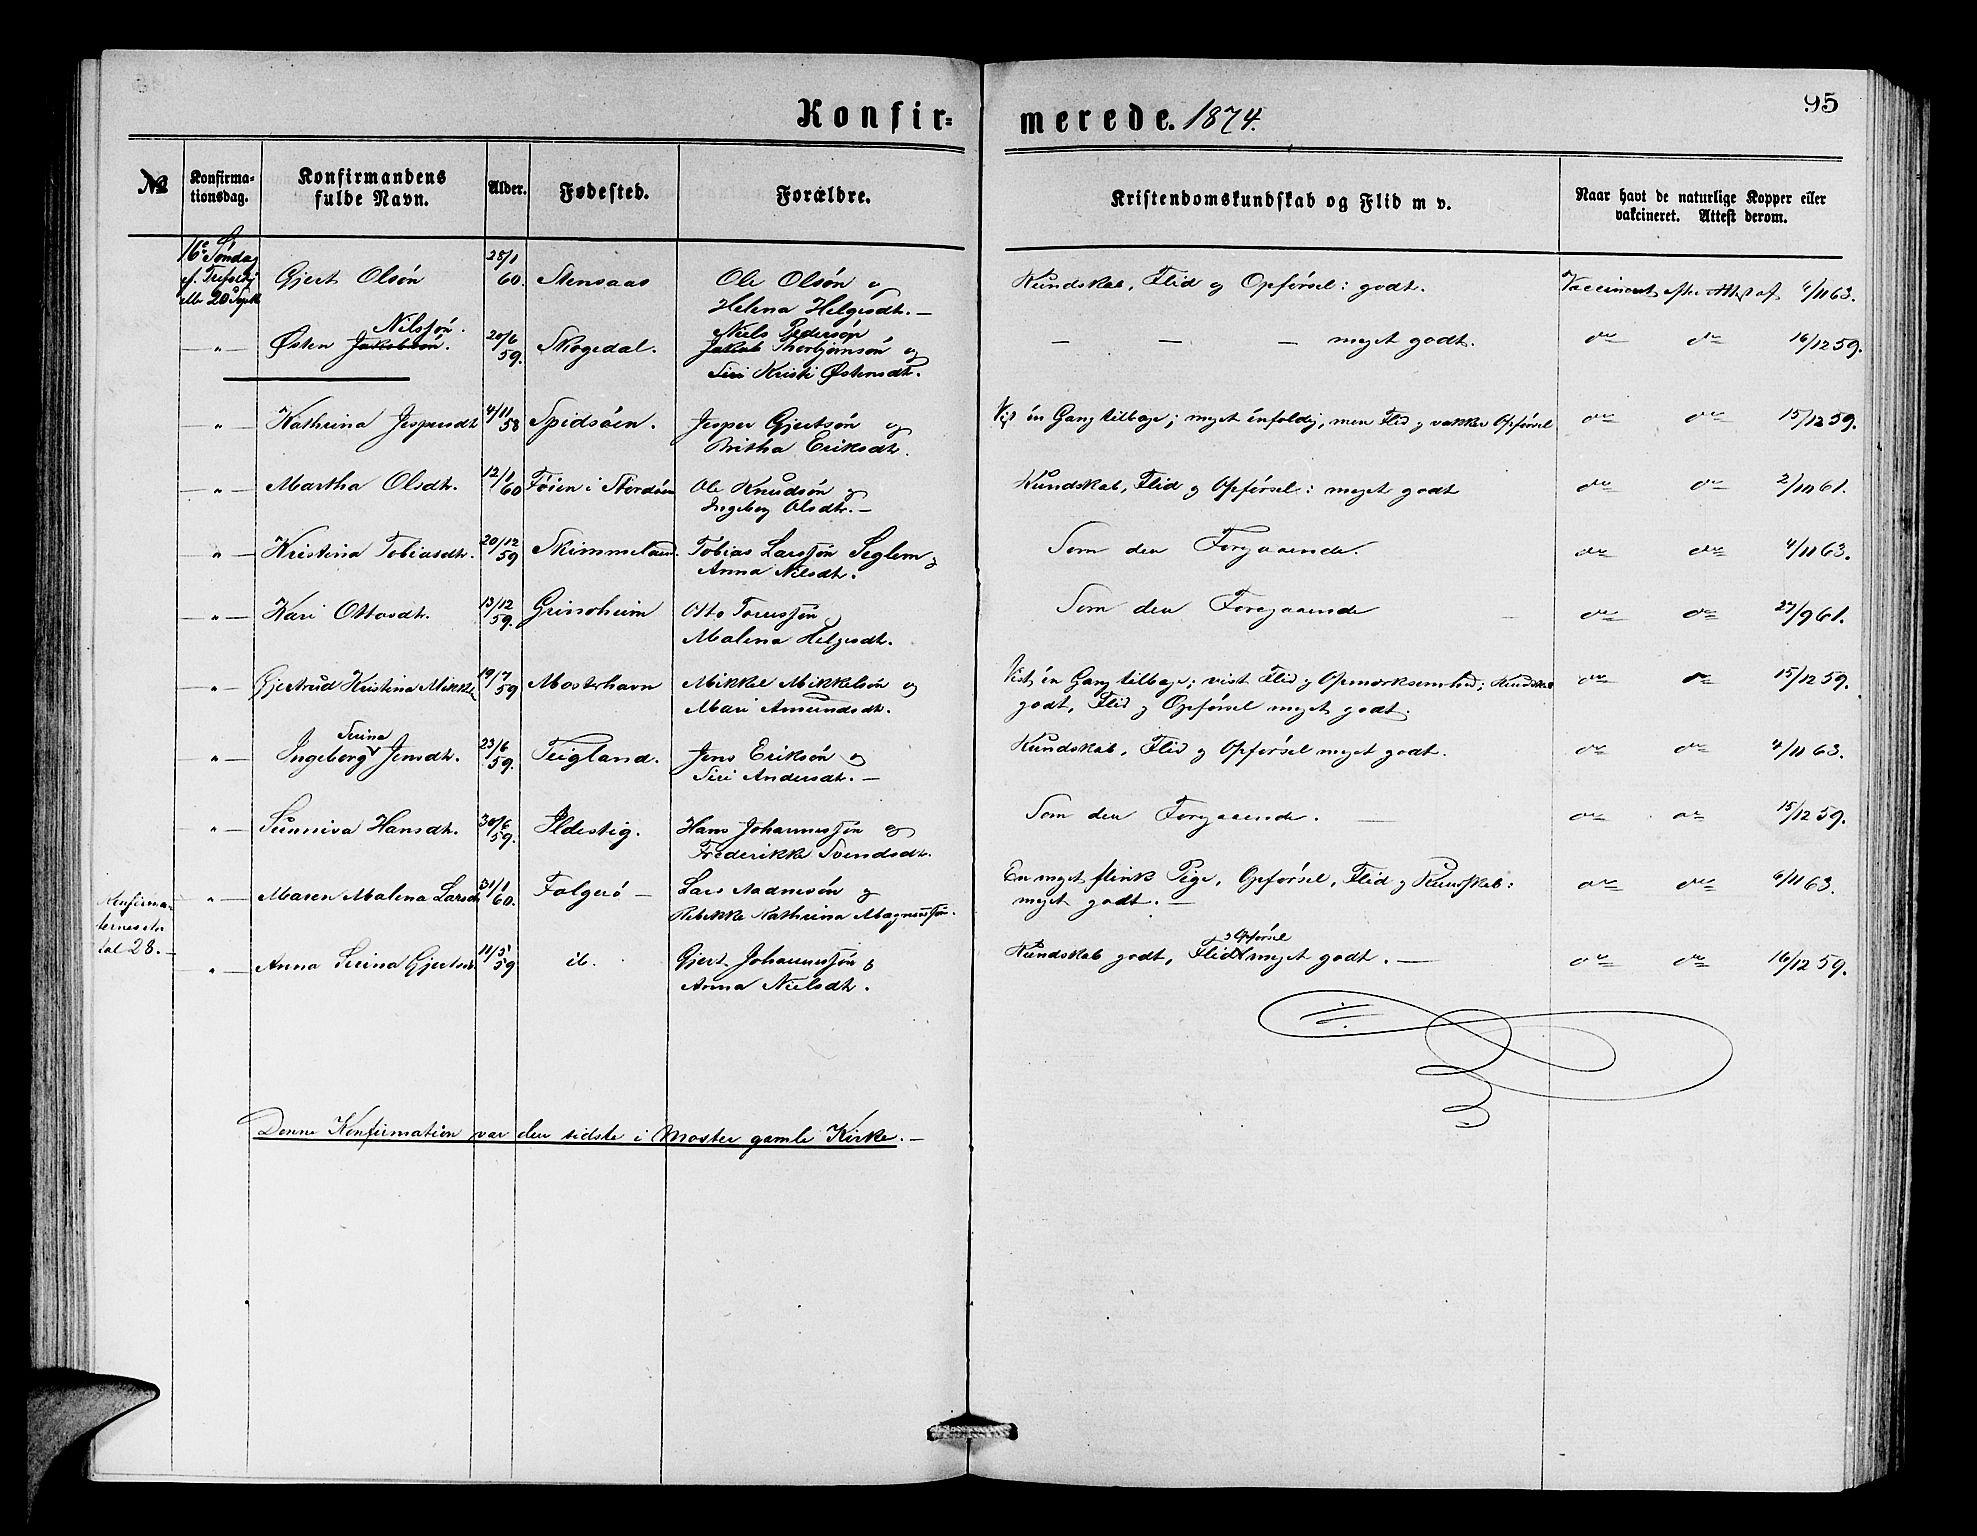 Konfir=
merede. 1874.
95
№
Konfirma-
tionsdag.
Konfirmandens
fulde Navn.
Alder.
Fødested.
Forældre.
Kristendomskundskab og Flid m v.
Naar havt de naturlige Kopper eller
vakcineret. Attest derom.
16e Søndag
ef. Trefoldig
elle 20 Septb
Gjert Olsön
28/1
60.
Stensaas
Ole Olsön og
Helena Helgesdt. —
Kundskab, Flid og Opförsel: godt.
Vaccineret efter Attest af 6/11 63.
— " —
Nilssön.
Østen Jakobsön.
20/6
59.
Skogedal.
Niels Pedersön
Jakob Thorbjörnsön og
Siri Kristi Østensdt.
— — — meget godt.
do do 16/12 59.
— " —
Kathrina Jespersdt
4/11
58
Spidsöen.
Jesper Gjertsön og
Britha Eriksdt.
Vist én Gang tilbage; meget enfoldig, men Flid og vakker Opförsel
do do 15/12 59.
— " —
Martha Olsdt.
12/1
60
Föien i Stordöen
Ole Knudsön og
Ingeborg Olsdtr. —
Kundskab, Flid og Opförsel: meget godt
do do 2/10 61.
— " —
Kristina Tobiasdt.
20/12
59
Skimmeland.
Tobias Larssön Seglem og
Anna Nilsdt.
Som den Forgaaende.
do do 4/11 63.
— " —
Kari Ottosdt.
13/12
59.
Grinoheim
Otto Toressön
Malena Helgesdt.
Som den Foregaaende
do do 27/9 61.
— " —
Gjertrud Kristina Mikkels
19/7
59
Mosterhavn
Mikkel Mikkelsön og
Mari Amundsdt.
Vist én Gang tilbage; vist Flid og Opmærksomhed; Kundskab
godt, Flid og Opförsel meget godt.
do do 15/12 59.
— " —
Serina
Ingeborg Jensdt.
23/6
59.
Teigland.
Jens Eriksön og
Siri Andersdt. —
Kundskab, Flid og Opförsel meget godt.
do do 4/11 63.
— " —
Sunniva Hansdt.
30/6
59.
Ildestig.
Hans Johannessön og
Frederikke Svendsdt.
Som den Forgaaende. —
do do 15/12 59.
— " —
Maren Malena Larsdt
31/1
60.
Folgerö —
Lars Aadnesön og
Rebekke Kathrina Magnussön.
En meget flink Pige, Opförsel, Flid og Kundskab:
meget godt. —
do do 6/11 63.
Konfirman-
ternes An-
tal 28. —
— " —
Anna Serina Gjertsd.
11/5
59
ib.
Gjert Johannessön og
Anna Nielsdt.
og Opförsel
Kundskab godt, Flid meget godt. —
do do 16/12 59.
Denne Konfirmation var den sidste i Moster gamle Kirke. —